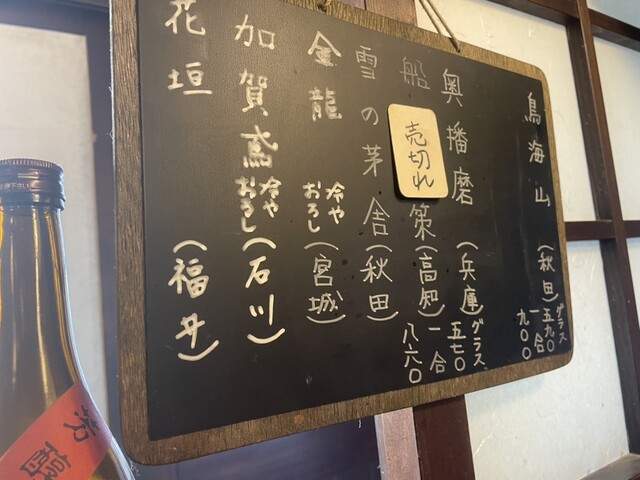 鳥海山(秋田)グラス五九〇
一合九〇〇
奥播磨(兵庫)グラス五七〇
一合八六〇
船
売切れ
策(高知)
雪の茅舎(秋田)
金龍 冷やおろし(宮城)
加賀鳶 冷やおろし(石川)
花垣(福井)
芳醇